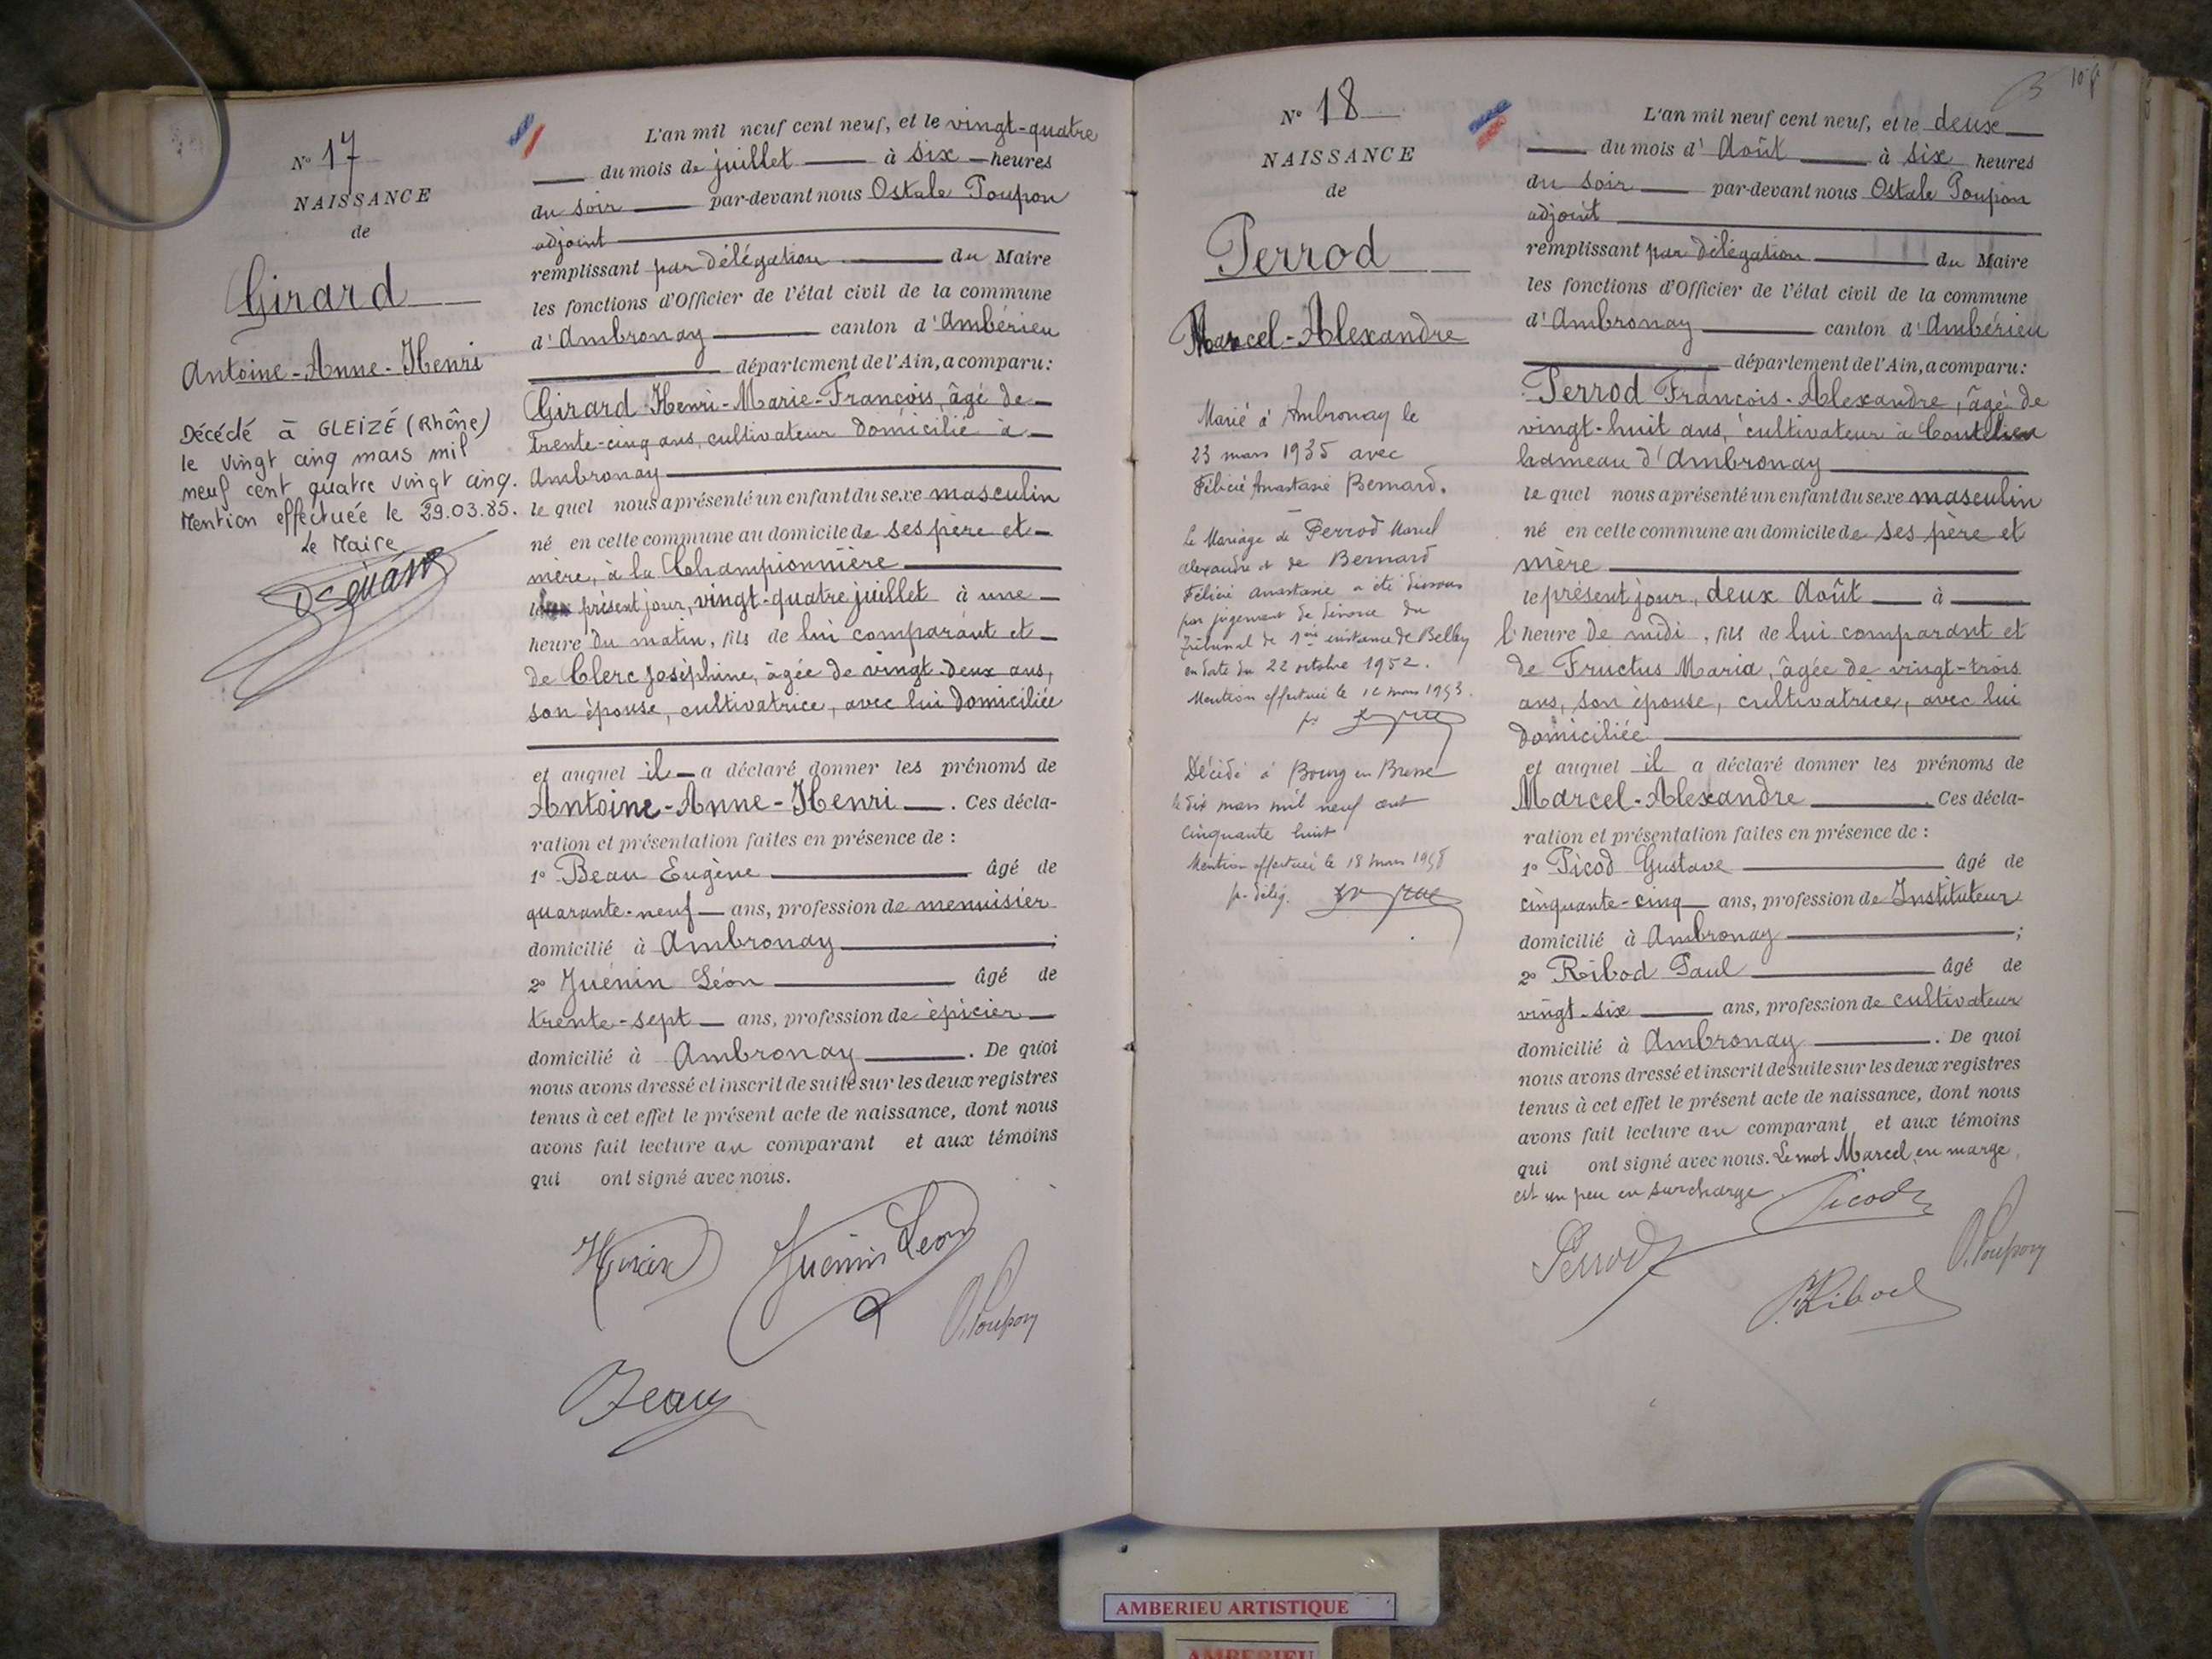 N° 17
NAISSANCE
de
Girard
Antoine-Anne-Henri
Décédé à GLEIZÉ (Rhône)
le vingt cinq mars mil
neuf cent quatre vingt cinq.
Mention effectuée le 29.03.85.
Le Maire
L'an mil neuf cent neuf, et le vingt-quatre
du mois de juillet à six heures
du soir par-devant nous Ostale Poupon
adjoint
remplissant par délégation du Maire
les fonctions d'Officier de l'état civil de la commune
d'Ambronay canton d'Ambérieu
département de l'Ain, a comparu:
Girard Henri-Marie-François, âgé de
trente-cinq ans, cultivateur domicilié à
Ambronay
le quel nous a présenté un enfant du sexe masculin
né en cette commune au domicile de ses père et
mère, à la Championnière
le présent jour, vingt-quatre juillet à une
heure du matin, fils de lui comparant et
de Clerc Joséphine, âgée de vingt-deux ans,
son épouse, cultivatrice, avec lui domiciliée
et auquel il a déclaré donner les prénoms de
Antoine-Anne-Henri. Ces décla-
ration et présentation faites en présence de :
1° Beau Eugène âgé de
quarante-neuf ans, profession de menuisier
domicilié à Ambronay ;
2° Juénin Léon âgé de
trente-sept ans, profession de épicier
domicilié à Ambronay. De quoi
nous avons dressé et inscrit de suite sur les deux registres
tenus à cet effet le présent acte de naissance, dont nous
avons fait lecture au comparant et aux témoins
qui ont signé avec nous.
Juénin Léon
O. Poupon
Beau
N° 18
NAISSANCE
de
Perrod
Marcel-Alexandre
Marié à Ambronay le
23 mars 1935 avec
Félicie Anastasie Bernard.
Le Mariage de Perrod Marcel
Alexandre et de Bernard
Félicie Anastasie a été dissous
par jugement de divorce du
Tribunal de 1ère instance de Belley
en date du 22 octobre 1952.
Mention effectuée le 12 mars 1953.
Décédé à Bourg en Bresse
le dix mars mil neuf cent
cinquante huit
Mention effectuée le 18 mars 1958
p. délég.
L'an mil neuf cent neuf, et le deux
du mois d'Août à six heures
du soir par-devant nous Ostale Poupon
adjoint
remplissant par délégation du Maire
les fonctions d'Officier de l'état civil de la commune
d'Ambronay canton d'Ambérieu
département de l'Ain, a comparu:
Perrod François-Alexandre, âgé de
vingt-huit ans, cultivateur à Coutelieu
hameau d'Ambronay
le quel nous a présenté un enfant du sexe masculin
né en cette commune au domicile de ses père et
mère
le présent jour, deux Août à
l'heure de midi, fils de lui comparant et
de Fructus Maria, âgée de vingt-trois
ans, son épouse, cultivatrice, avec lui
domiciliée
et auquel il a déclaré donner les prénoms de
Marcel-Alexandre. Ces décla-
ration et présentation faites en présence de :
1° Picod Gustave âgé de
cinquante-cinq ans, profession de Instituteur
domicilié à Ambronay ;
2° Ribod Paul âgé de
vingt-six ans, profession de cultivateur
domicilié à Ambronay. De quoi
nous avons dressé et inscrit de suite sur les deux registres
tenus à cet effet le présent acte de naissance, dont nous
avons fait lecture au comparant et aux témoins
qui ont signé avec nous. Le mot Marcel, en marge,
est un peu en surcharge
Picod
Perrod
O. Poupon
P. Ribod
AMBERIEU ARTISTIQUE
AMBERIEU